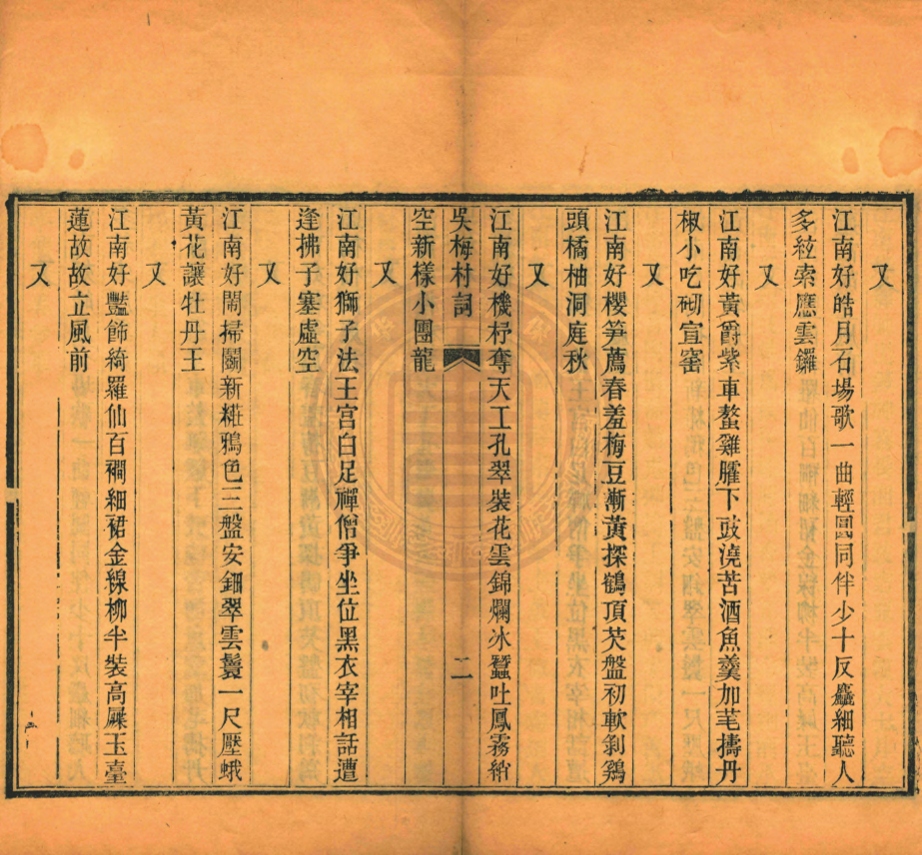 又
江南好皓月石場歌一曲輕圓同伴少十反麤細聽人
多絃索應雲鑼
又
江南好黃爵紫車螯雞臛下豉澆苦酒魚羹加芼擣丹
椒小吃砌宣窰
又
江南好櫻笋薦春羞梅豆漸黃探鶴頂芡盤初軟剝鷄
頭橘柚洞庭秋
又
江南好機杼奪天工孔翠裝花雲錦爛冰蠶吐鳳霧綃
吳梅村詞 二
空新樣小團龍
又
江南好獅子法王宮白足禪僧爭坐位黑衣宰相話遭
逢拂子塞虛空
又
江南好鬧掃鬭新糚鴉色三盤安鈿翠雲鬟一尺壓蛾
黃花讓牡丹王
又
江南好豔飾綺羅仙百襇細裙金線柳半裝高屧玉臺
蓮故故立風前
又